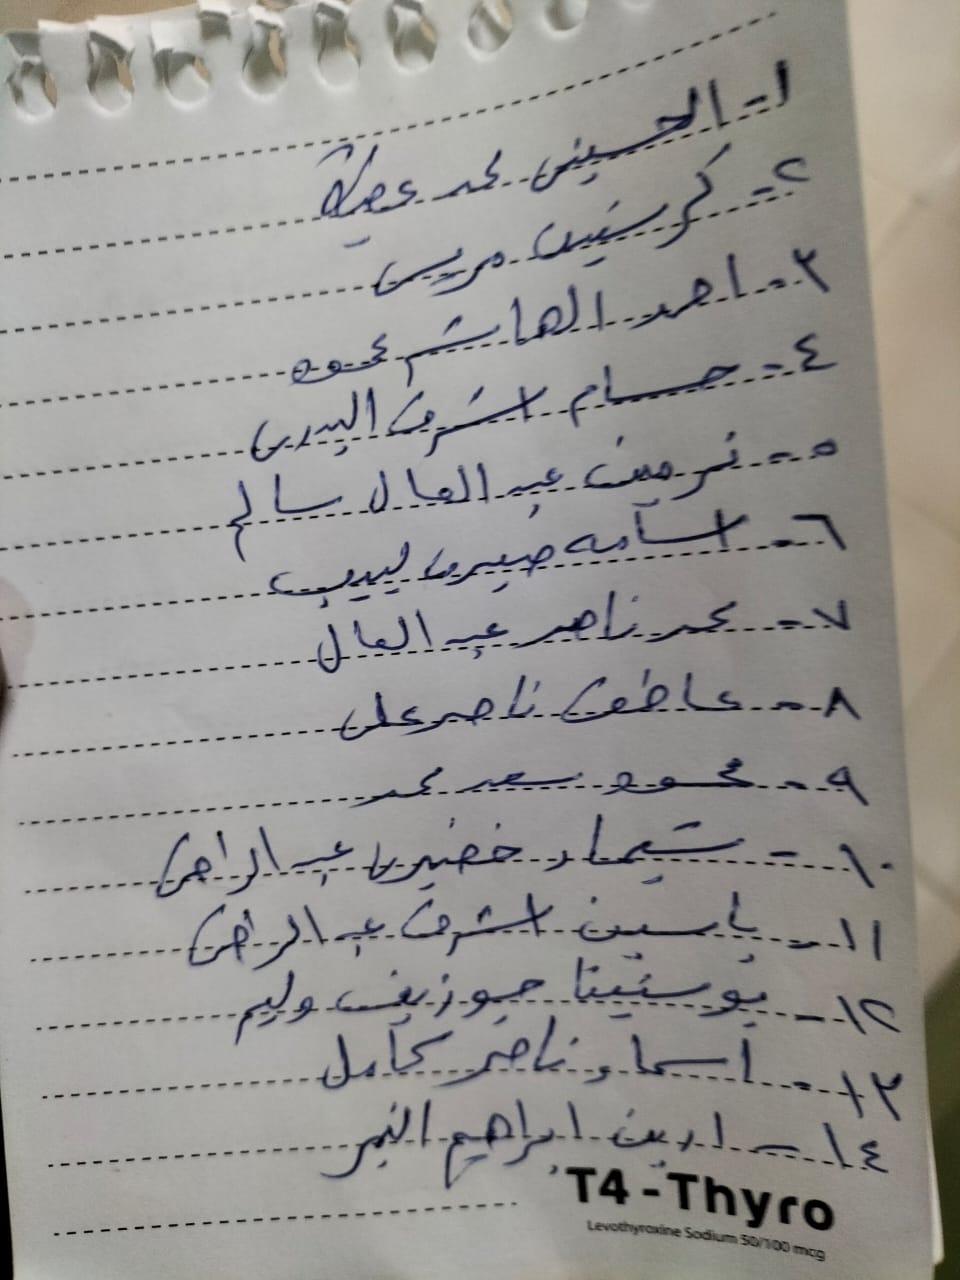 ١- الحسيني محمد عطية
٢- كرستين مريس
٣- احمد الهاشم محمود
٤- حسام اشرف البدري
٥- نرمين عبد العال سالم
٦- اسامه صبري لبيب
٧- محمد ناصر عبد العال
٨- عاطف ناصر علي
٩- محمود سعد محمد
١٠- شيماء خضيري عبد الراحمن
١١- ياسين اشرف عبد الرحمن
١٢- يوستينا جوزيف وليم
١٣- اسماء ناصر كامل
١٤- ارين ابراهيم النمر
T4-Thyro
Levothyroxine Sodium 50/100 mcg